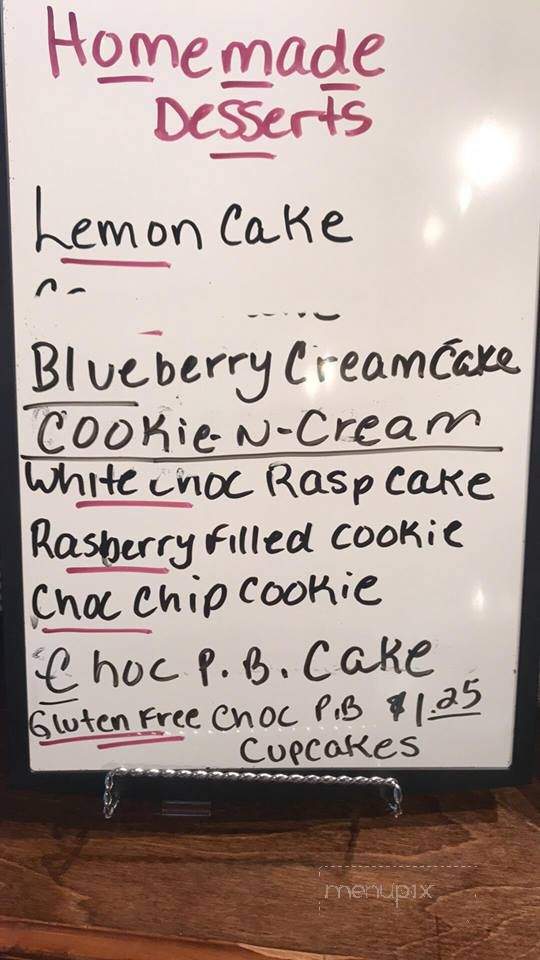 Homemade
Desserts
Lemon Cake
Blueberry Cream Cake
Cookie-N-Cream
White Choc Rasp Cake
Rasberry Filled Cookie
Choc Chip Cookie
Choc P.B. Cake
Gluten Free Choc P.B $1.25
Cupcakes
menupix